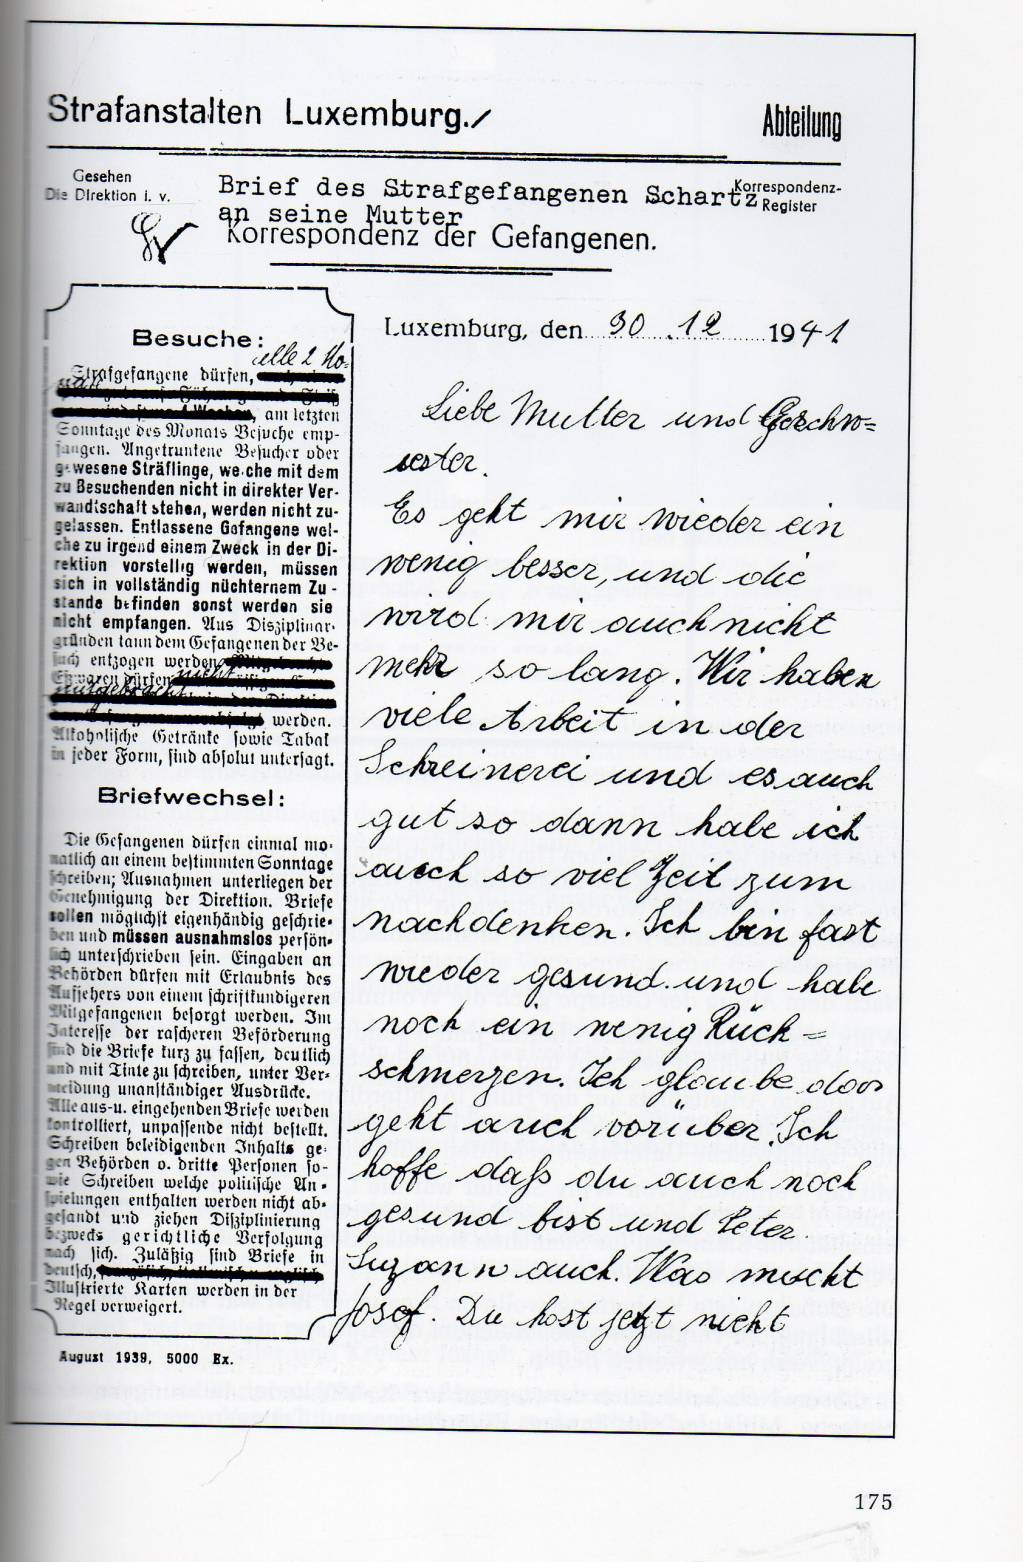 Strafanstalten Luxemburg./
Abteilung
Gesehen
Die Direktion i. v.
Brief des Strafgefangenen Schartz
an seine Mutter
Korrespondenz-
Register
Korrespondenz der Gefangenen.
Besuche:
alle 2 Mo-
Strafgefangene dürfen,
nat
am letzten
Sonntage des Monats Besuche emp-
fangen. Angetruntene Besucher oder
gewesene Sträflinge, welche mit dem
zu Besuchenden nicht in direkter Ver-
wandtschaft stehen, werden nicht zu-
gelassen. Entlassene Gefangene wel-
che zu irgend einem Zweck in der Di-
rektion vorstellig werden, müssen
sich in vollständig nüchternem Zu-
stande befinden sonst werden sie
nicht empfangen. Aus Disziplinar-
gründen kann dem Gefangenen der Be-
such entzogen werden
Eßwaren dürfen nicht
mitgebracht
werden.
Alkoholische Getränke sowie Tabak
in jeder Form, sind absolut untersagt.
Briefwechsel:
Die Gefangenen dürfen einmal mo-
natlich an einem bestimmten Sonntage
schreiben; Ausnahmen unterliegen der
Genehmigung der Direktion. Briefe
sollen möglichst eigenhändig geschrie-
ben und müssen ausnahmslos persön-
lich unterschrieben sein. Eingaben an
Behörden dürfen mit Erlaubnis des
Aufsehers von einem schriftkundigeren
Mitgefangenen besorgt werden. Im
Interesse der rascheren Beförderung
sind die Briefe kurz zu fassen, deutlich
und mit Tinte zu schreiben, unter Ver-
meidung unanständiger Ausdrücke.
Alle aus-u. eingehenden Briefe werden
kontrolliert, unpassende nicht bestellt.
Schreiben beleidigenden Inhalts ge-
gen Behörden o. dritte Personen so-
wie Schreiben welche politische An-
spielungen enthalten werden nicht ab-
gesandt und ziehen Disziplinierung
bezwecks gerichtliche Verfolgung
nach sich. Zuläßig sind Briefe in
deutsch,
Illustrierte Karten werden in der
Regel verweigert.
August 1939, 5000 Ex.
Luxemburg, den 30. 12 1941
Liebe Mutter und Geschw=
iester.
Es geht mir wieder ein
wenig besser, und die
wird mir auch nicht
mehr so lang. Wir haben
viele Arbeit in der
Schreinerei und es auch
gut so dann habe ich
auch so viel Zeit zum
nachdenken. Ich bin fast
wieder gesund und habe
noch ein wenig Rück=
schmerzen. Ich glaube das
geht auch vorüber. Ich
hoffe daß du auch noch
gesund bist und Peter
Suzann auch. Was macht
Josef. Du hast jetzt nicht
175